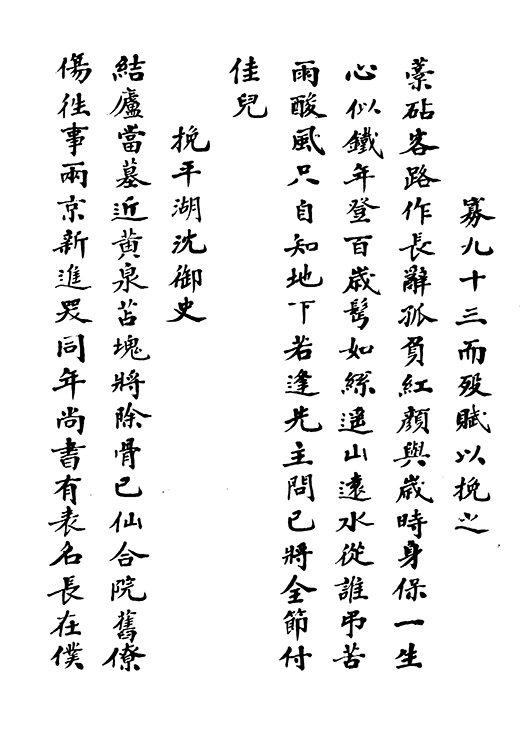 寡九十三而歿賦以挽之
藁砧客路作長辭孤負紅顏與歲時身保一生
心似鐵年登百歲髩如絲遥山遠水從誰弔苦
雨酸風只自知地下若逢先主問已將全節付
佳兒
挽平湖沈御史
結廬當墓近黄泉苫塊將除骨已仙合院舊僚
傷徃事兩京新進哭同年尚書有表名長在僕